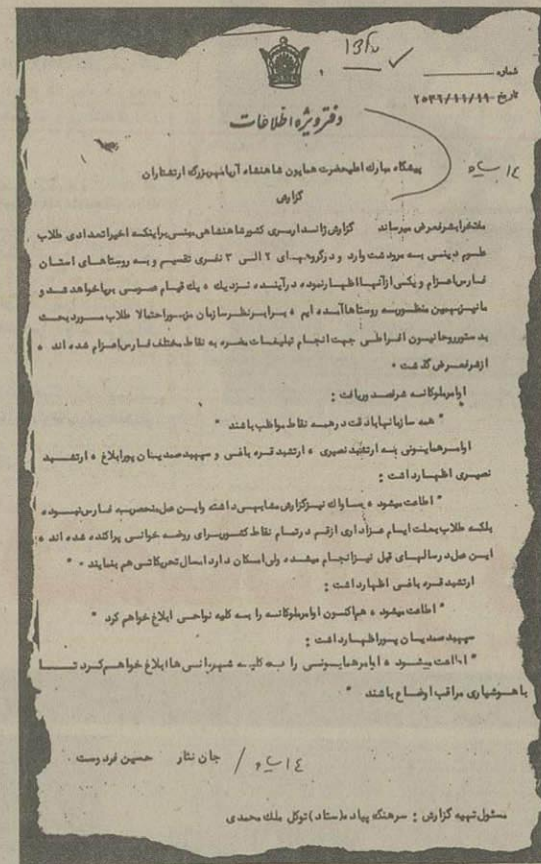 شماره
تاریخ ۲۵۳۶/۱۱/۱۹
دفتر ویژه اطلاعات
پیشگاه مبارک اعلیحضرت همایون شاهنشاه آریامهر بزرگ ارتشتاران
گزارش
مفتخرا بشرفعرض میرساند گزارش ژاندارمری کشور شاهنشاهی مبنی براینکه اخیرا تعدادی طلاب
علوم دینی به مرودشت وارد و در گروههای ۲ الی ۳ نفری تقسیم و به روستاهای استان
فارس اعزام و یکی از آنها اظهار نموده در آینده نزدیک ، یک قیام عمومی برپا خواهد شد و
ما نیز بهمین منظور به روستاها آمده ایم ، برابر نظر سازمان مزبور احتمالا طلاب مورد بحث
بدستور روحانیون افراطی جهت انجام تبلیغات مضره به نقاط مختلف فارس اعزام شده اند ،
از شرفعرض گذشت .
اوامر ملوکانه شرفصدور یافت :
" همه سازمانها با دقت در همه نقاط مواظب باشند "
اوامر همایونی به ارتشبد نصیری ، ارتشبد قره باغی و سپهبد صمدیان پور ابلاغ ، ارتشبد
نصیری اظهار داشت :
" اطاعت میشود ، ساواک نیز گزارش مشابهی داشته و این عمل منحصر به فارس نبوده
بلکه طلاب بعلت ایام عزاداری از قم در تمام نقاط کشور برای روضه خوانی پراکنده شده اند ،
این عمل در سالهای قبل نیز انجام میشده ولی امکان دارد امسال تحریکاتی هم بنمایند . "
ارتشبد قره باغی اظهار داشت :
" اطاعت میشود ، هم اکنون اوامر ملوکانه را به کلیه نواحی ابلاغ خواهم کرد "
سپهبد صمدیان پور اظهار داشت :
" اطاعت میشود ، اوامر همایونی را به کلیه شهربانی ها ابلاغ خواهم کرد تا
با هوشیاری مراقب اوضاع باشند "
جان نثار حسین فردوست
مسئول تهیه گزارش : سرهنگ پیاده (ستاد) توکل ملک محمدی